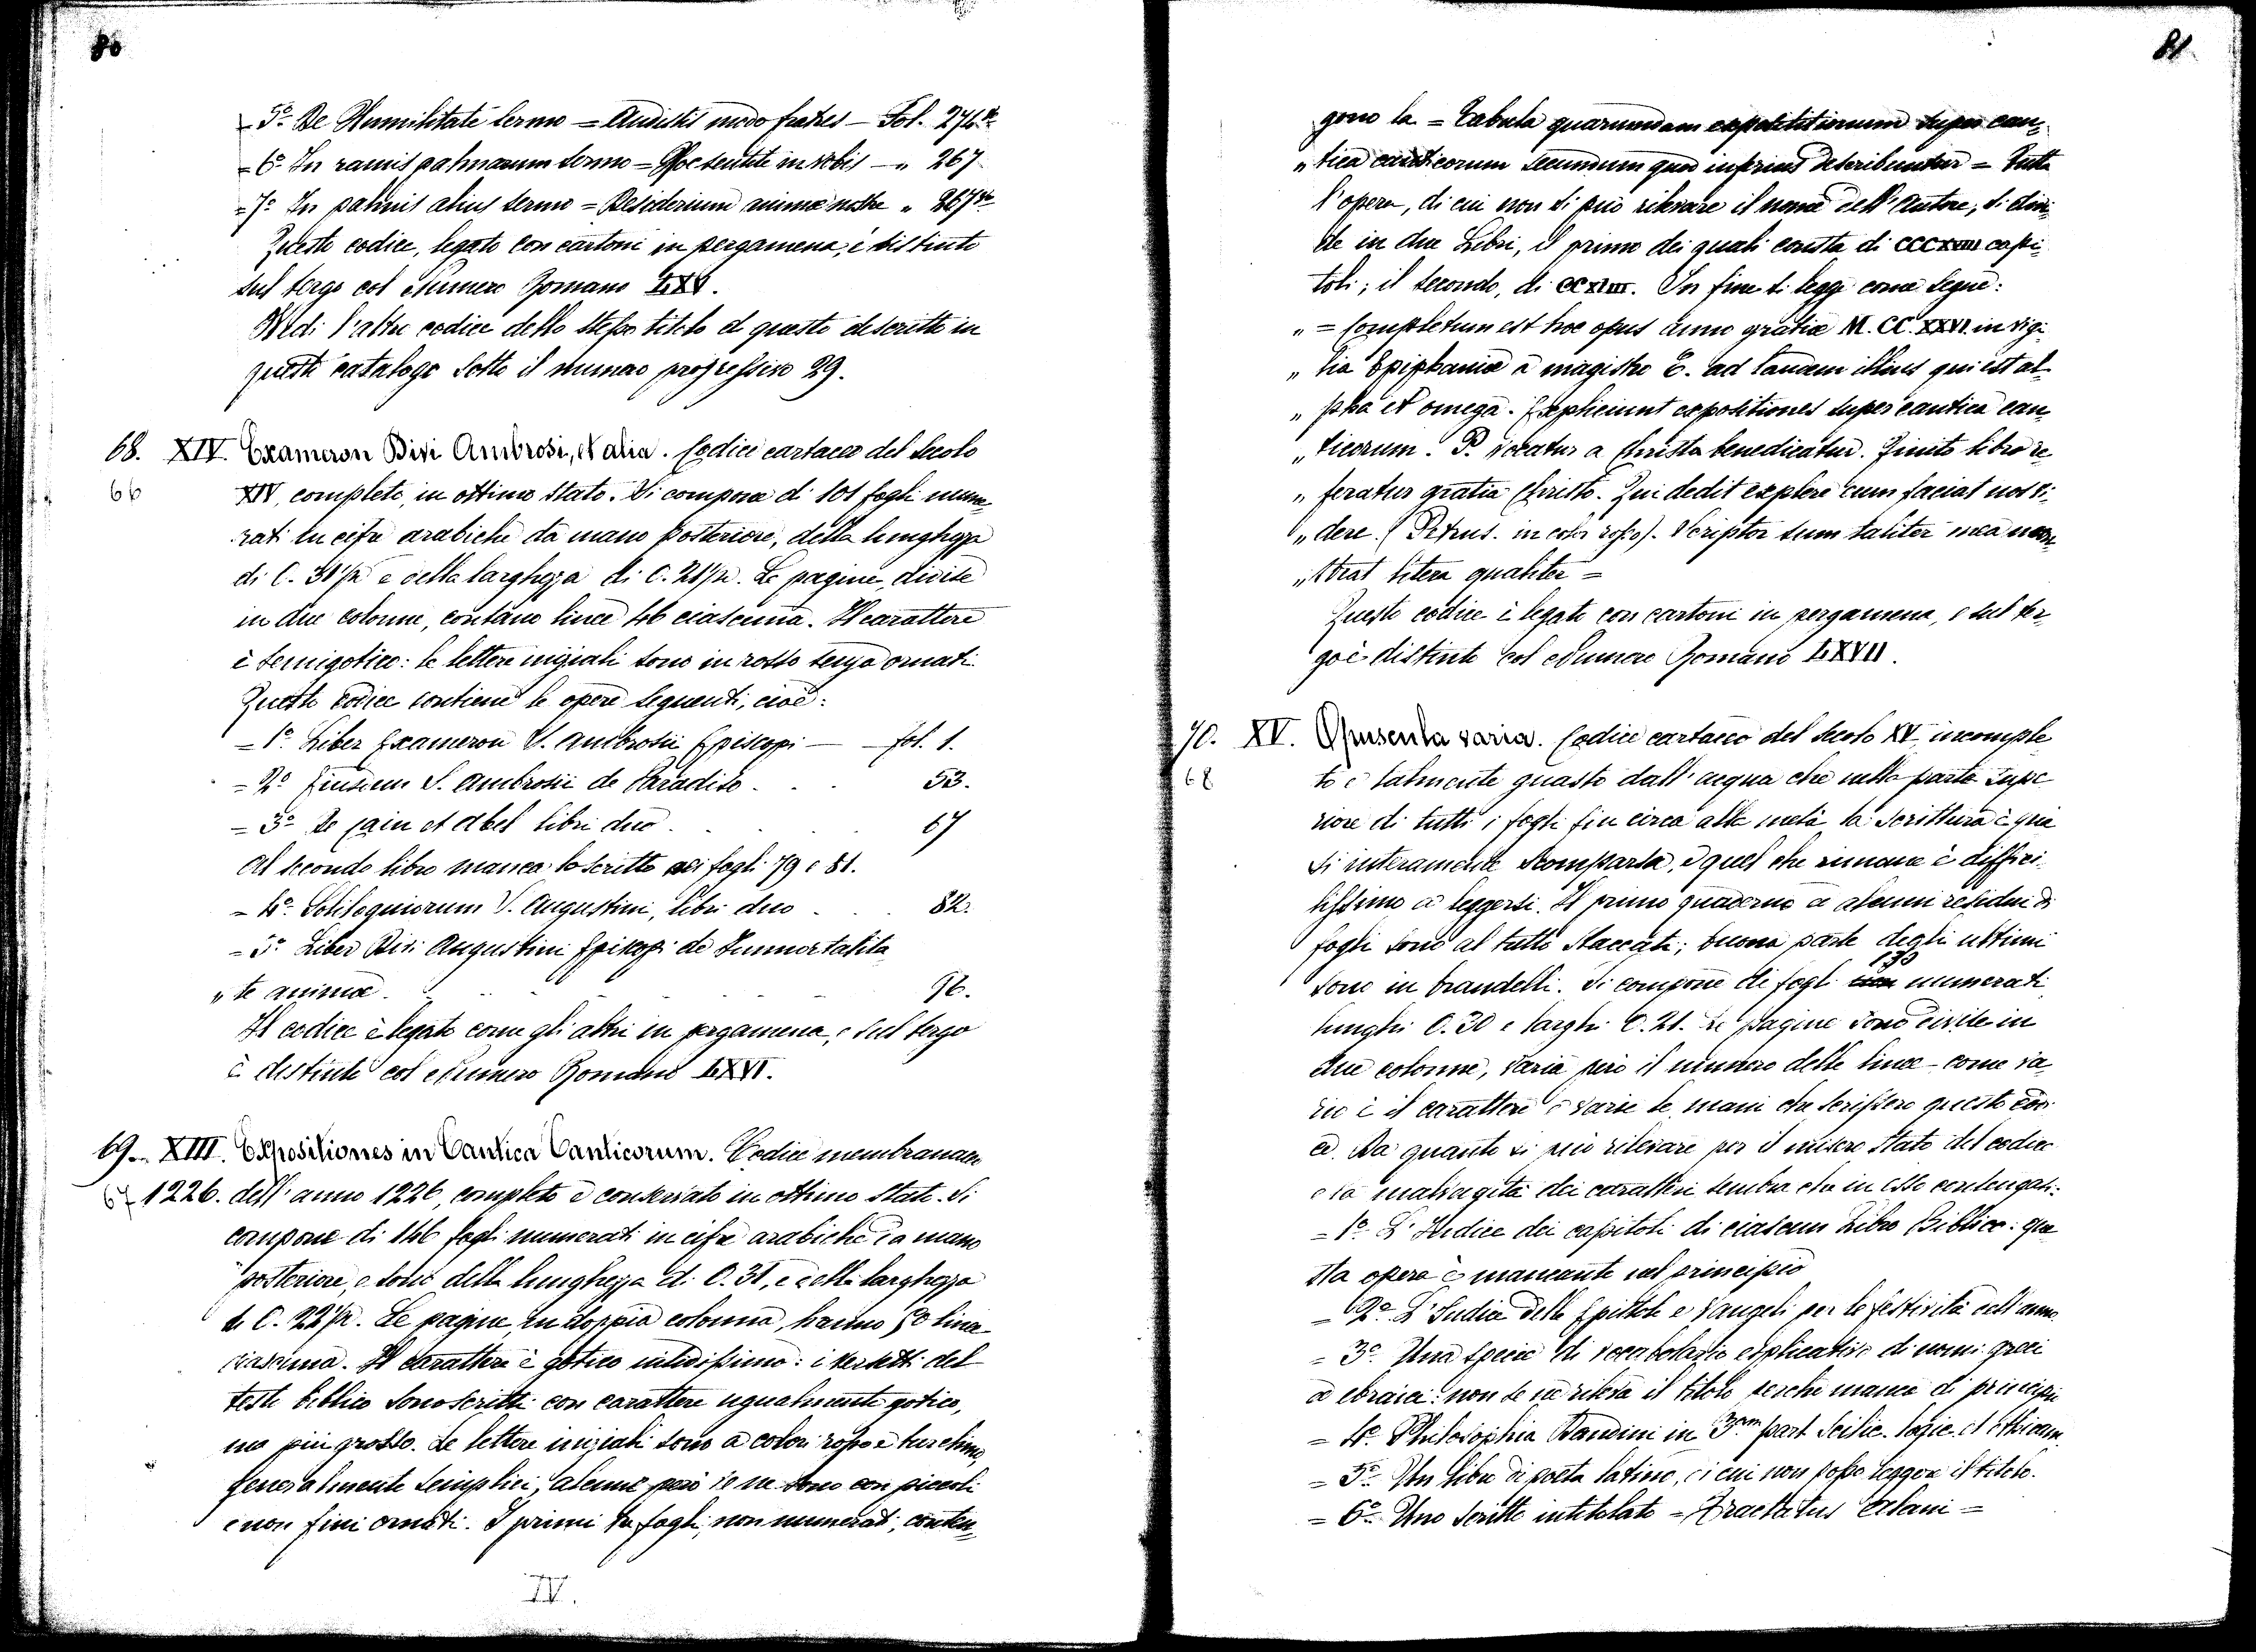 80
= 5º De Humilitate sermo = Audistis modo fratres — Fol. 274 to
= 6º In ramis palmarum sermo = Hoc sentite in vobis — „ 267
= 7º In palmis alius sermo = Desiderium animæ nostræ „ 267 to
Questo codice, legato con cartoni in pergamena, è distinto
sul tergo col Numero Romano LXV.
Vedi l'altro codice dello stesso titolo di questo descritto in
questo catalogo sotto il numero progressivo 29.
68. XIV. Exameron Divi Ambrosi, et alia. Codice cartaceo del Secolo
66 XIV, completo, in ottimo stato. Si compone di 101 fogli nume
rati in cifre arabiche da mano posteriore, della lunghezza
di C. 31 1/2 e della larghezza di C. 21 1/2. Le pagine, divise
in due colonne, contano linee 46 ciascuna. Il carattere
è semigotico: le lettere iniziali sono in rosso senza ornati.
Questo codice contiene le opere seguenti, cioè:
= 1º Liber Exameron S. Ambrosii Episcopi — fol. 1.
= 2º Eiusdem S. Ambrosii de Paradiso . . . 53.
= 3º De Cain et Abel libri duo . . . 67
Al secondo libro manca lo scritto nei fogli 79 e 81.
= 4º Soliloquiorum S. Augustini, libri duo . . . 82.
= 5º Liber Divi Augustini Episcopi de Immortalita
„ te animæ . . . 96.
Il codice è legato come gli altri in pergamena, e sul tergo
è distinto col Numero Romano LXVI.
69. XIII. Expositiones in Cantica Canticorum. Codice membranaceo
67 1226. dell'anno 1226, completo e conservato in ottimo stato. Si
compone di 146 fogli numerati in cifre arabiche da mano
posteriore, e sono della lunghezza di C. 31, e della larghezza
di C. 22 1/2. Le pagine, in doppia colonna, hanno 50 linee
ciascuna. Il carattere è gotico nitidissimo: i versetti del
testo biblico sono scritti con carattere ugualmente gotico,
ma più grosso. Le lettere iniziali sono a colori rosso e turchino,
generalmente semplici, alcune però ve ne sono con piccoli
e non fini ornati. I primi tre fogli, non numerati, conten
IV.
81
gono la = Tabula quarumdam expositionum super can
„ tica canticorum secundum quod inferius describuntur = Tutta
l'opera, di cui non si può rilevare il nome dell'Autore, si divi
de in due Libri, il primo dei quali consta di CCCXVIII capi
toli; il secondo, di CCXIIII. In fine si legge come segue:
„ = Completum est hoc opus anno gratiæ M. CC. XXVI. in vigi
„ lia Epiphaniæ a magistro E. ad laudem illius qui est al
„ pha et omega. Expliciunt expositiones super cantica can
„ ticorum. P. vocatur a Christo benedicatur. Finito libro re
„ feratur gratia Christo. Qui dedit explere cum faciat nos vi
„ dere. (Petrus. in color rosso). Scriptor sum taliter mea mon
„ strat litera qualiter =
Questo codice è legato con cartoni in pergamena, e sul ter
go è distinto col Numero Romano LXVII.
70. XV. Opuscula varia. Codice cartaceo del Secolo XV, incomple
68 to e talmente guasto dall'acqua che nella parte supe
riore di tutti i fogli fin circa alla metà la scrittura è qua
si interamente scomparsa, e quel che rimane è diffici
lissimo a leggersi. Il primo quaderno e alcuni residui di
fogli sono al tutto staccati; buona parte degli ultimi
sono in brandelli. Si compone di fogli 130 numerati
lunghi C. 30 e larghi C. 21. Le pagine sono divise in
due colonne, varia però il numero delle linee — come va
rio è il carattere e varie le mani che scrissero questo codi
ce. Da quanto si può rilevare per il misero stato del codice
e la malvagità dei caratteri sembra che in esso contengasi:
= 1º L'Indice dei capitoli di ciascun Libro Biblico: que
sta opera è mancante nel principio
= 2º L'Indice delle Epistole e Vangeli per le festività dell'anno
= 3º Una specie di vocabolario esplicativo di nomi greci
ed ebraici: non se ne rileva il titolo perchè manca di principio
= 4º Philosophia Bandini in 3am part scilic. logic. et Ethicam
= 5º Un libro di poeta latino, di cui non posso leggere il titolo.
= 6º Uno scritto intitolato = Tractatus Alani =